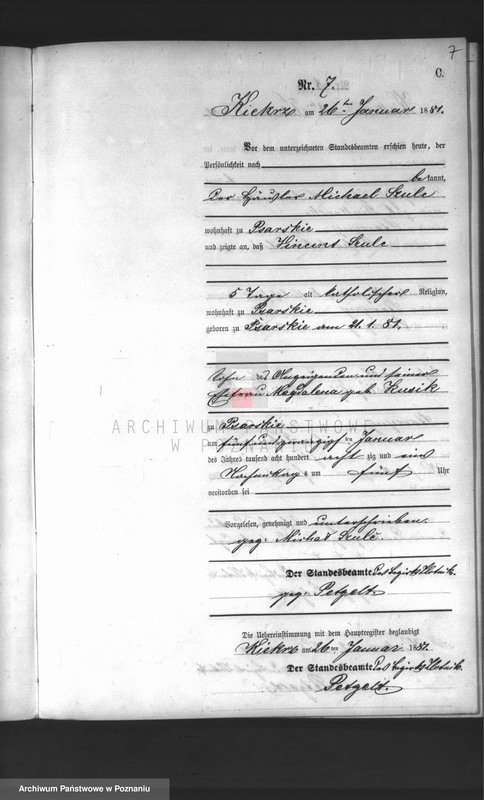 7
C.
Nr. 7.
Kiekrz am 26ten Januar 1881.
Vor dem unterzeichneten Standesbeamten erschien heute, der
Persönlichkeit nach
bekannt,
Der Häusler Michael Szulc
wohnhaft zu Psarskie
und zeigte an, daß Vincent Szulc
5 Tage alt katholischer Religion,
wohnhaft zu Psarskie
geboren zu Psarskie am 21. 1. 81.
Sohn des Anzeigenden und seiner
Ehefrau Magdalena geb. Kusik
ARCHIWUM PAŃSTWOWE
W POZNANIU
zu Psarskie
am fünf und zwanzigsten Januar
des Jahres tausend acht hundert acht zig und eins
Nachmittags um fünf Uhr
verstorben sei
Vorgelesen, genehmigt und unterschrieben.
gez. Michał Szulc.
Der Standesbeamte des Bezirks
gez. Petzelt.
Die Uebereinstimmung mit dem Hauptregister beglaubigt
Kiekrz am 26ten Januar 1881.
Der Standesbeamte des Bezirks
Petzelt.
Archiwum Państwowe w Poznaniu